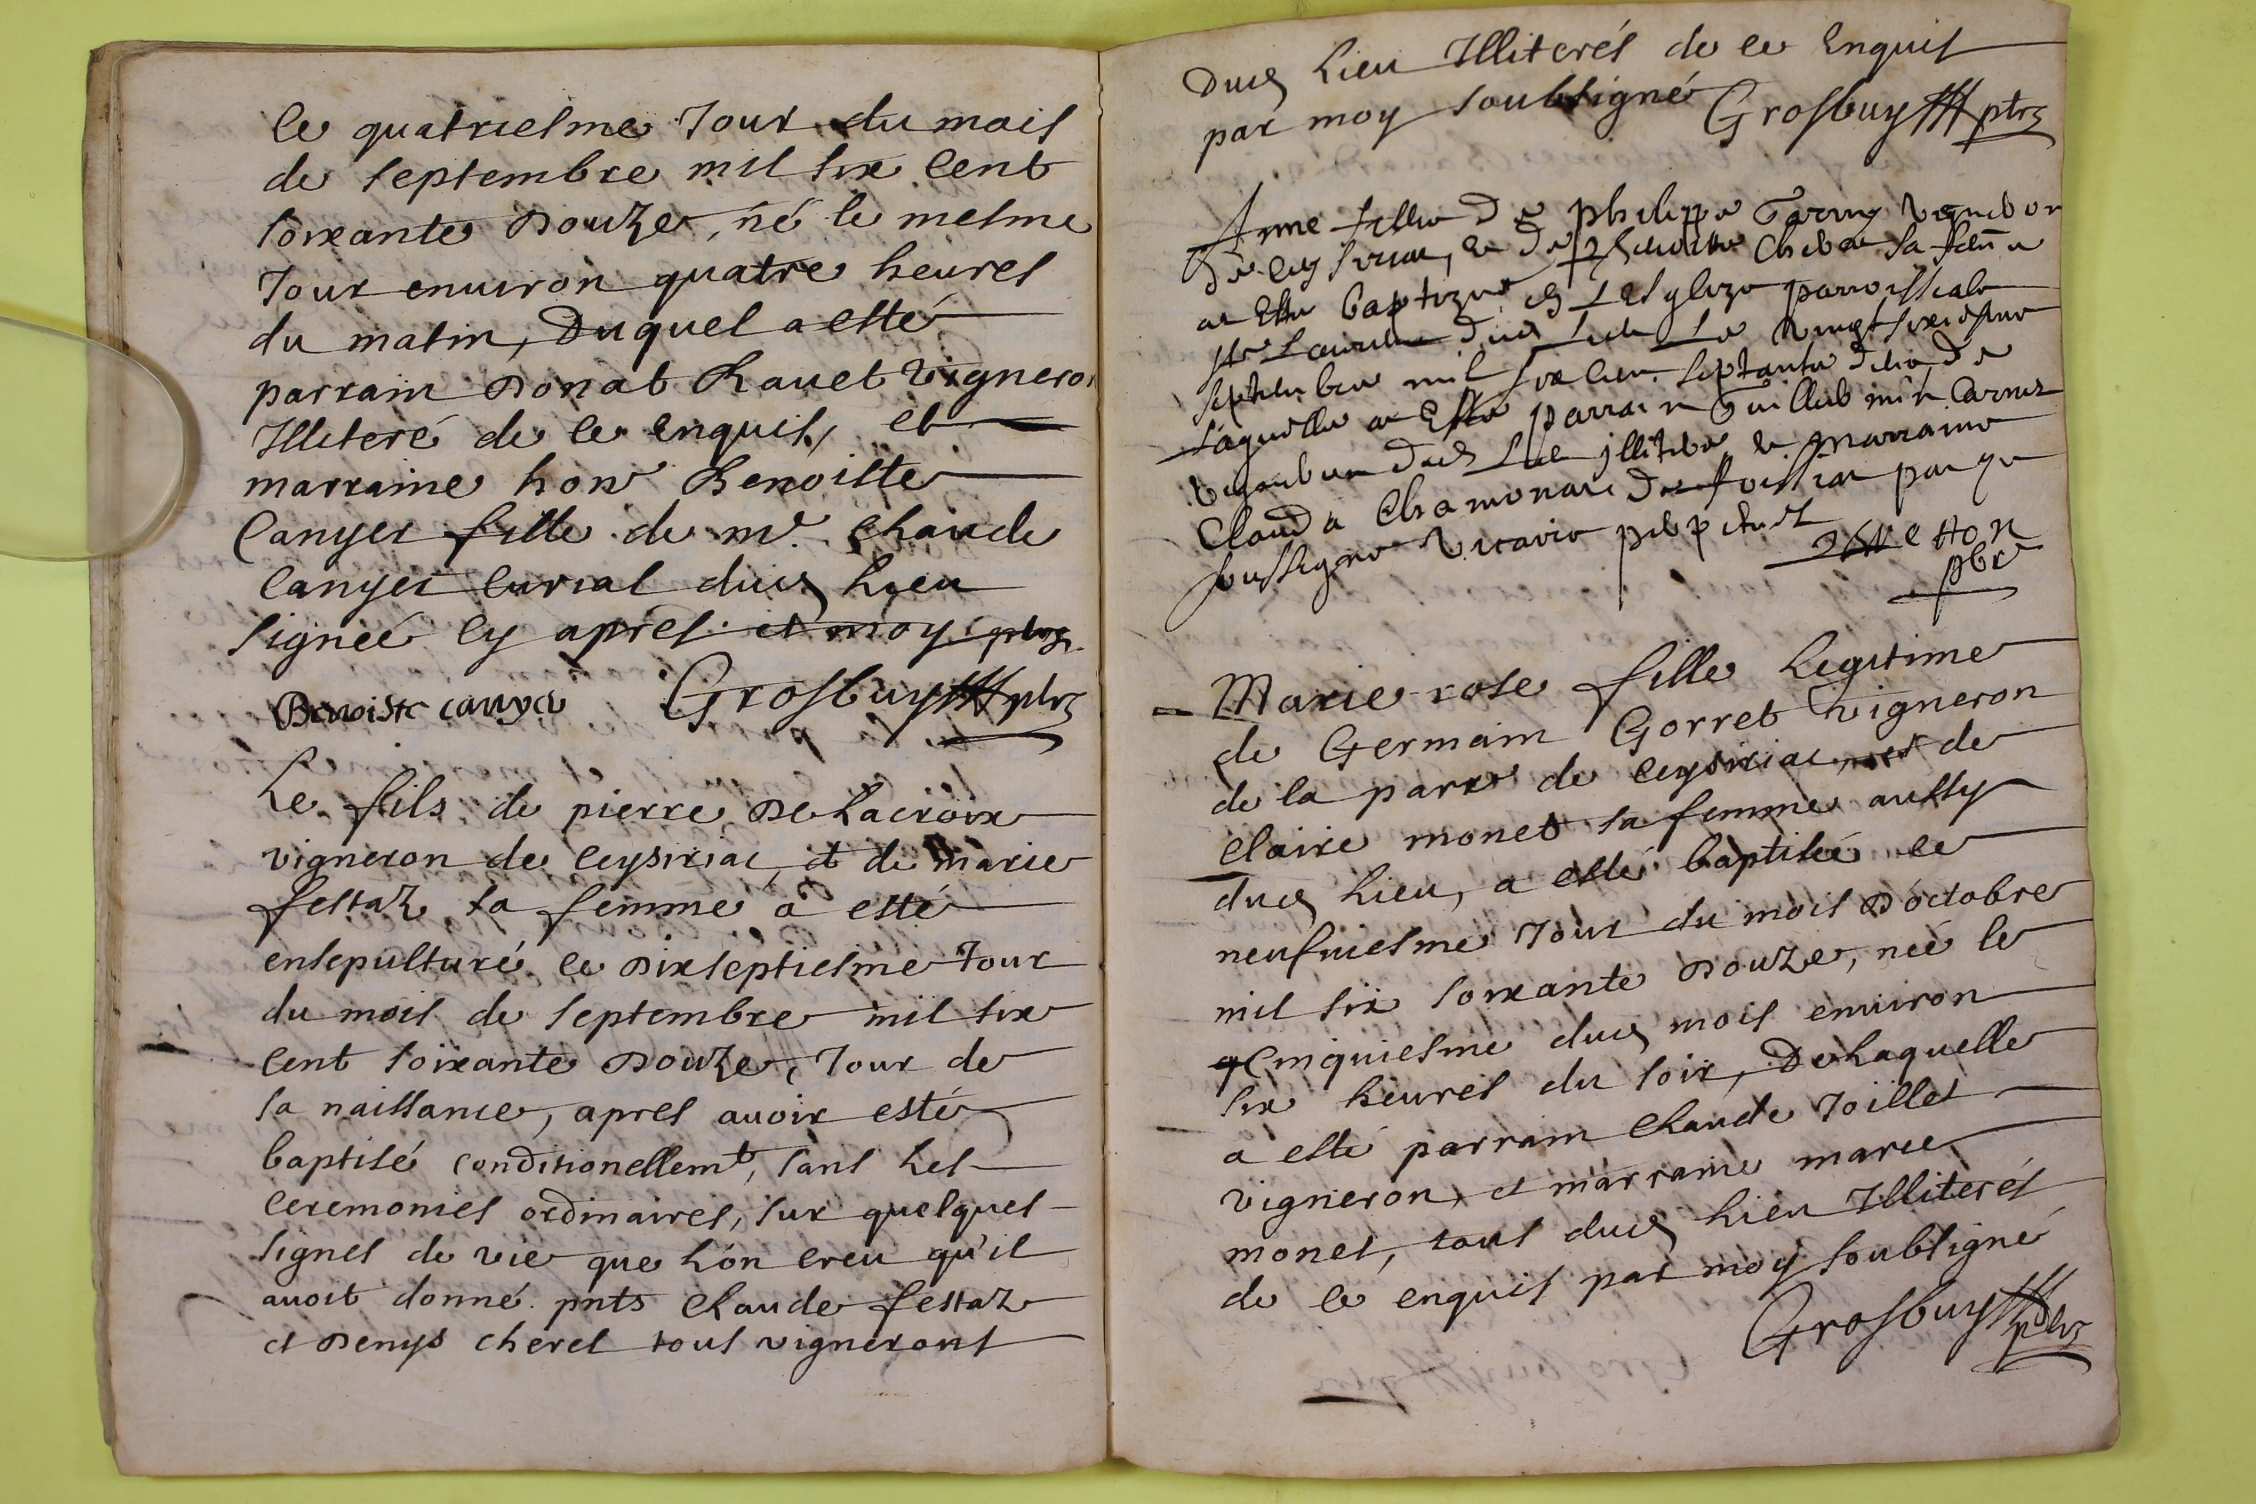 le quatriesme Jour du mois
de septembre mil six Cent
soixante Douze, né le mesme
Jour enuiron quatre heures
du matin, Duquel a esté
parrain Donat Rauet Vigneron
Illiteré de ce enquis, et
marraine hon Benoiste
Canyer fille de mr Claude
Canyer Curial dud lieu
signeé Cy apres et moy ptre
Benoiste canyer Grosbuy ptre
Le fils de pierre De Lacroix
vigneron de Ceysiriac et de marie
festaz sa femme a esté
ensepulturé le Dixseptiesme Jour
du mois de septembre mil six
Cent soixante Douze, Jour de
sa naissance, apres auoir esté
baptisé conditionellemt, sans les
ceremonies ordinaires, sur quelques
signes de vie que l'on creu qu'il
auoit donné. pnts Claude festaz
et Denys cheret tous vignerons
Dud Lieu Illiterés de ce Enquis
par moy soubsigné Grosbuy ptre
Anne fillie De philippe
a Esté baptizé en Lesglize parroissiale
dud Lieu Le vingt sixiesme
septembre mil six cens septante
Laquelle a Esté parrain
dud Lieu illiteré et marraine
Clauda par je
soussigné vicaire
pbr
Marie rose fille Legitime
de Germain Gorret Vigneron
de la parre de Ceysiriac et de
Claire monet sa femme aussy
dud Lieu, a esté baptisée le
neufuiesme Jour du mois D'octobre
mil six soixante Douze, neé le
Cinquiesme dud mois enuiron
six heures du soir, De Laquelle
a esté parrain Claude Joillet
vigneron, et marraine marie
monet, tous dud Lieu Illiterés
de ce enquis par moy soubsigné
Grosbuy ptre